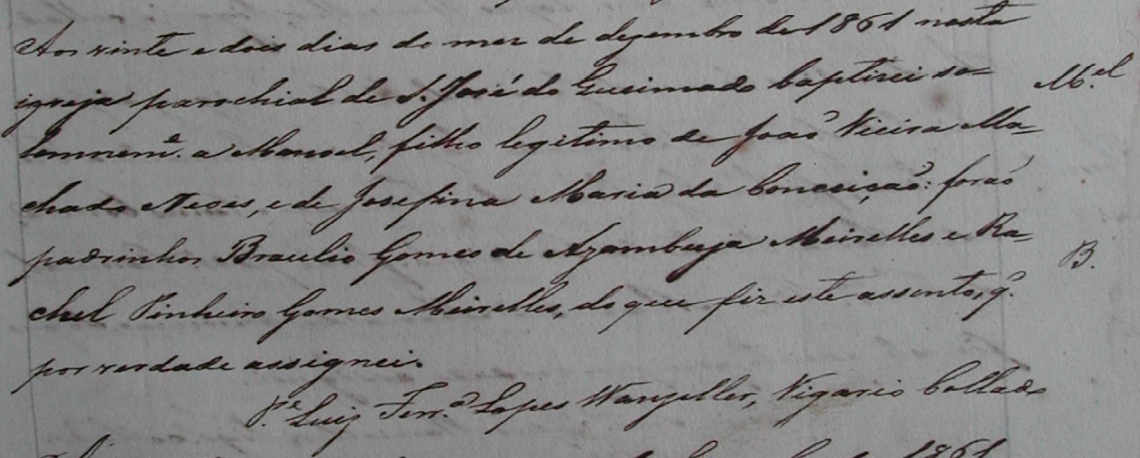 Aos vinte e dois dias do mez de dezembro de 1861 nesta
igreja parochial de S. José do Queimado baptisei so-
lemnemᵉ. a Manoel, filho legitimo de João Vieira Ma-
chado Neves, e de Josefina Maria da Conceição: forão
padrinhos Braulio Gomes de Azambuja Meirelles e Ra-
chel Pinheiro Gomes Meirelles, do que fiz este assento, q̃.
por verdade assignei.
Pᵉ Luiz Ferr.ª Lopes Wanzeller, Vigario Collado
M.ᵉˡ
B.
1861